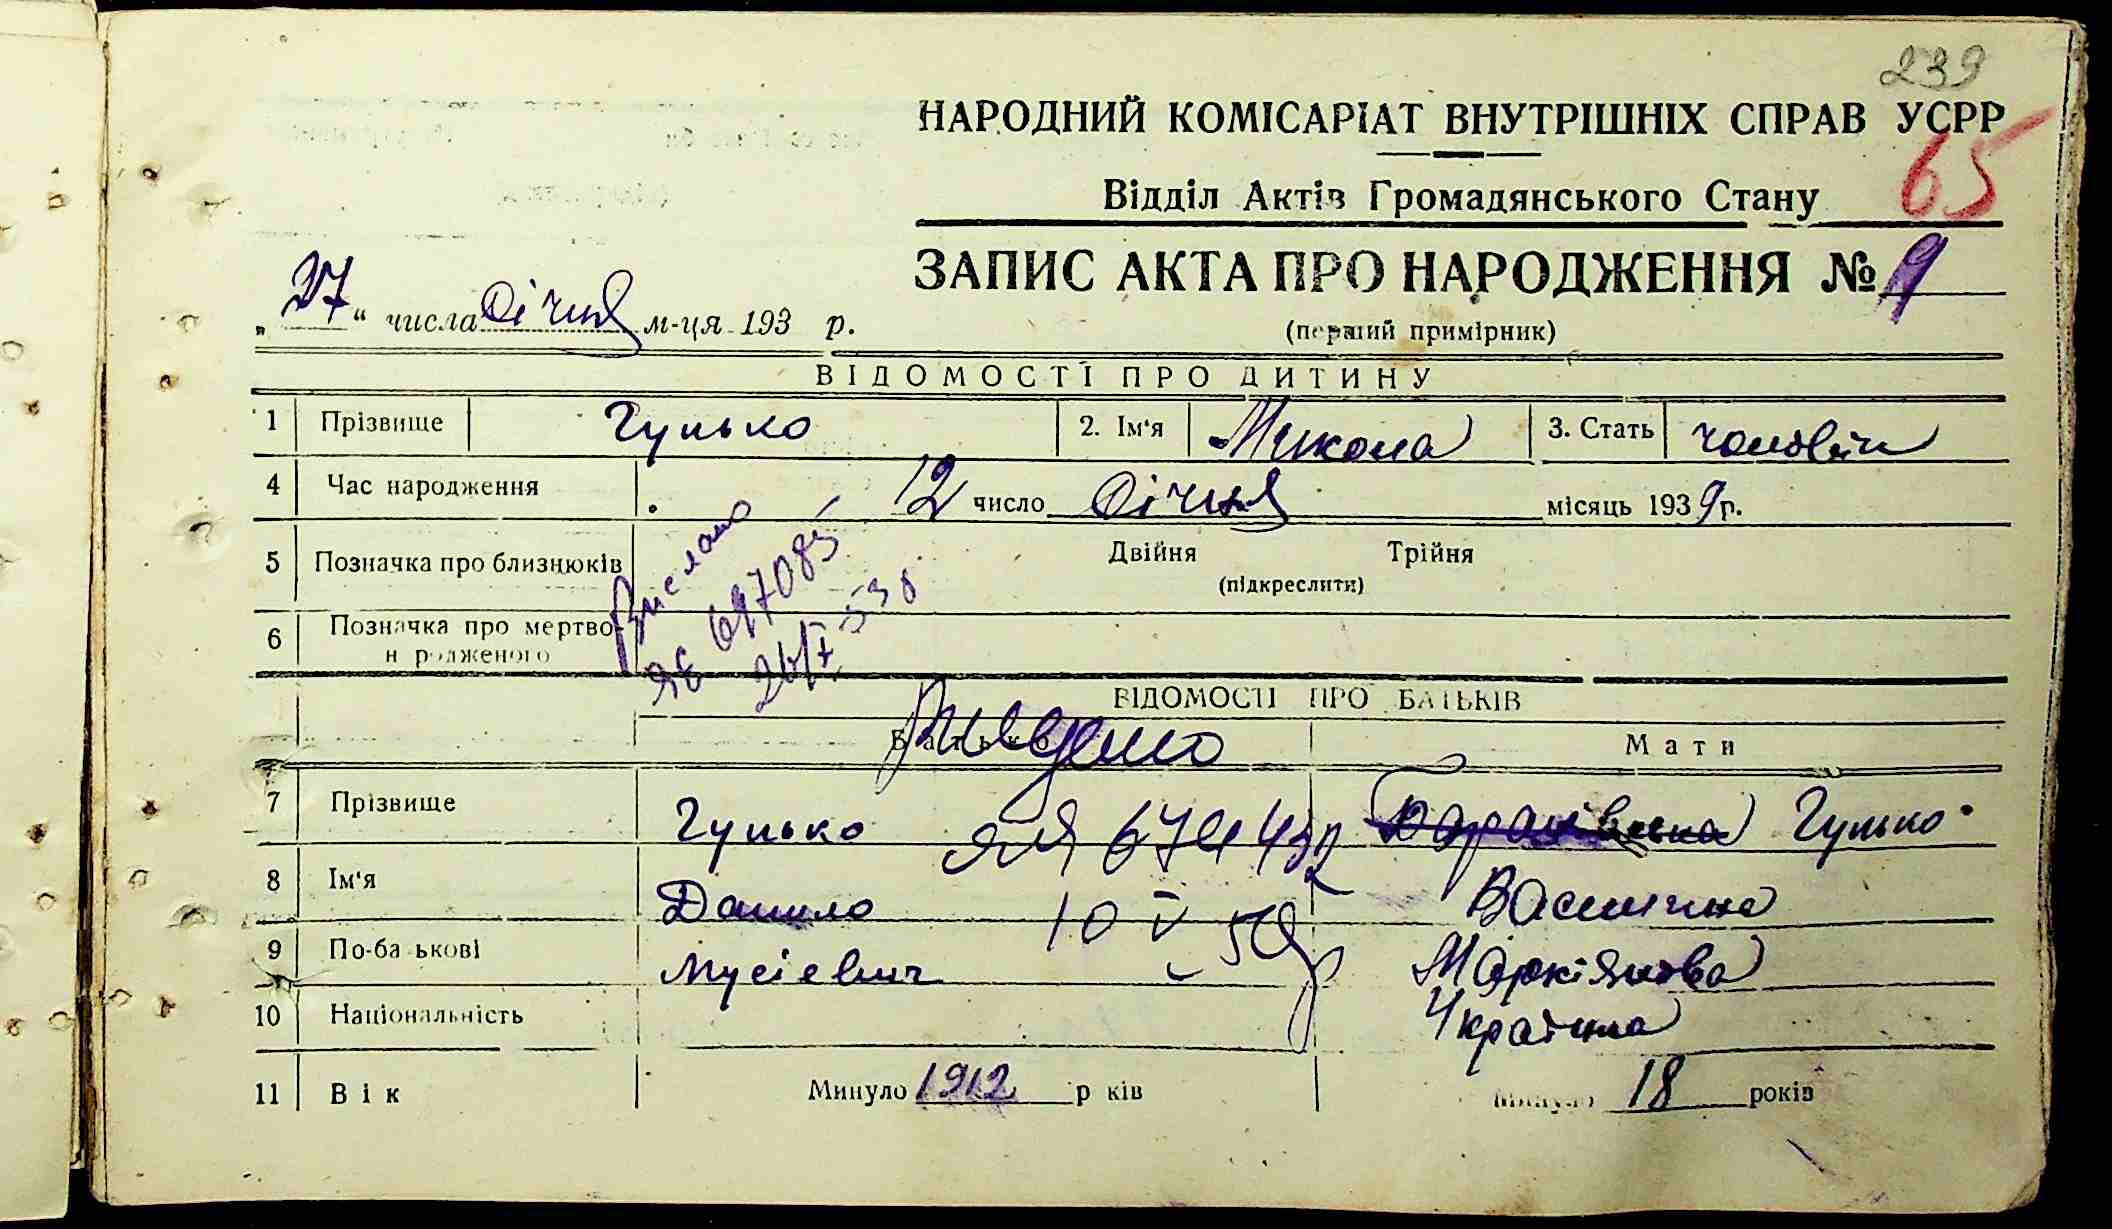 239
НАРОДНИЙ КОМІСАРІАТ ВНУТРІШНІХ СПРАВ УСРР
65
Відділ Актів Громадянського Стану
ЗАПИС АКТА ПРО НАРОДЖЕННЯ № 9
„27“ числа Січня м-ця 193 р.
(перший примірник)
ВІДОМОСТІ ПРО ДИТИНУ
1 Прізвище Гунько 2. Ім'я Микола 3. Стать чоловіч
4 Час народження 12 число Січня місяць 1939 р.
5 Позначка про близнюків Двійня Трійня
(підкреслити)
6 Позначка про мертвонародженого
Вислано
ЯЕ 697085
ВІДОМОСТІ ПРО БАТЬКІВ
Батько Мати
Видано
7 Прізвище Гунько Гунько
8 Ім'я Данило Василина
10 V 50р
9 По-батькові Мусієвич Маркіянова
10 Національність Українка
11 Вік Минуло 1912 років Минуло 18 років